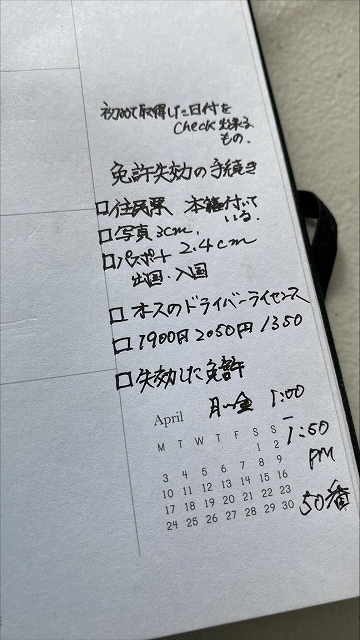 初めて取得した日付を
Check出来る
もの.
免許失効の手続き
□住民票 本籍付いて
いる.
□写真 3cm.
□パスポート 2.4cm
出国.入国
□オースのドライバーライセンス
□1900円 2050円 1350
□失効した免許
月〜金 1:00
–
1:50
PM
50番
April
M T W T F S S
1 2
3 4 5 6 7 8 9
10 11 12 13 14 15 16
17 18 19 20 21 22 23
24 25 26 27 28 29 30